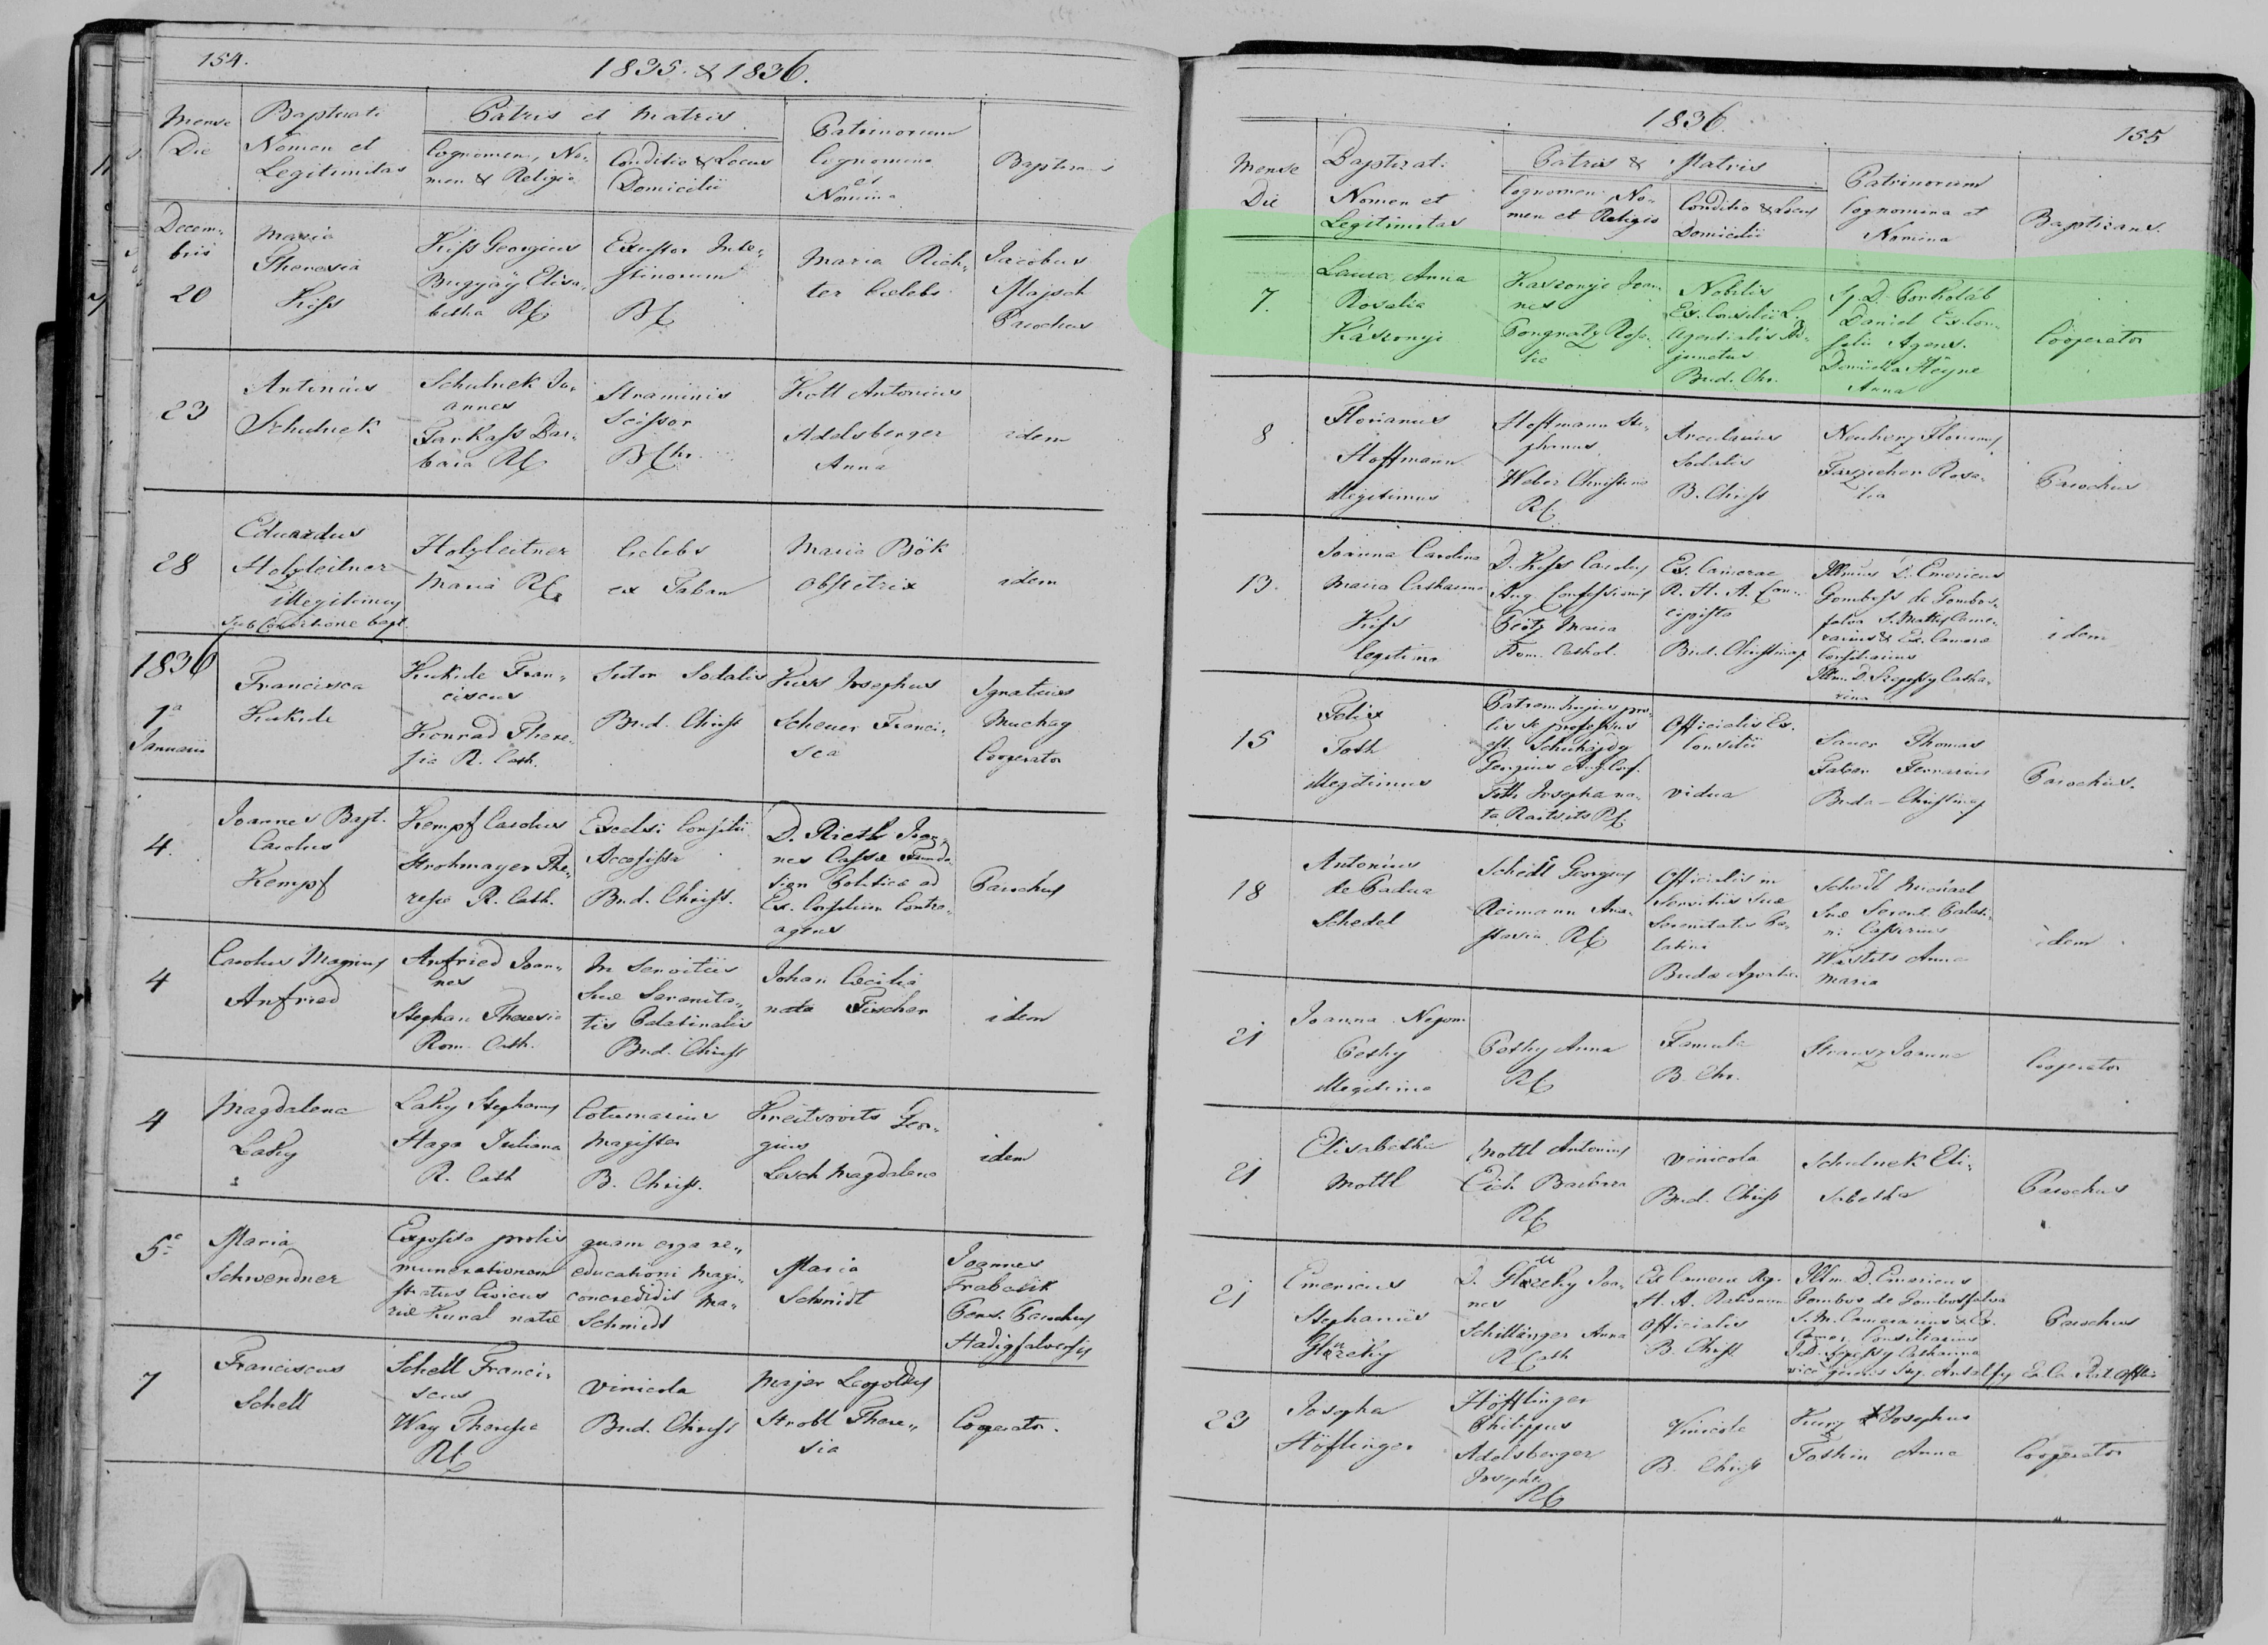 154.
1835. & 1836.
Mense
Die
Baptisati
Nomen et
Legitimitas
Patris et Matris
Cognomen, No-
men & Religio
Conditio & Locus
Domicilii
Patrinorum
Cognomina
et
Nomina
Baptisans
Decem-
bris
20
Maria
Theresia
Kiss
Kiss Georgius
Elisa-
betha RC
Inte-
stinorum
Maria Rich-
ter Caelebs
Jacobus
Majsch
Parochus
23
Antonius
Schulnek
Schulnek Jo-
annes
Farkass Bar-
bara RC
Straminis
Scissor
B Chr.
Kott Antonius
Adelsberger
Anna
idem
28
Eduardus
Holzleitner
Illegitimus
Sub Conditione bapt.
Holzleitner
Maria RC
Caelebs
ex Taban
Maria Bök
obstetrix
idem
1836
1a
Januarii
Francisca
Kukide
Kukide Fran-
ciscus
Konrad There-
sia R. Cath.
Sutor Sodalis
Bud. Christ
Kiss Josephus
Scheuer Franci-
sca
Ignatius
Muchag
Cooperator
4.
Joannes Bapt.
Carolus
Kempf
Kempf Carolus
Strohmayer The-
resia R. Cath.
Excelsi Consilii
Accessista
Bud. Christ.
D. Rieth Joan-
nes Cassae Funda-
tion Politicae ad
Ex. Consilium Contra-
agens
Parochus
4
Carolus Magnus
Anfried
Anfried Joan-
nes
Stephan Theresia
Rom. Cath.
In Servitiis
Suae Serenita-
tis Palatinalis
Bud. Christ
Johan Caecilia
nata Fischer
idem
4
Magdalena
Laky
Laky Stephanus
Haga Juliana
R. Cath
Coturnarius
Magister
B. Christ.
Kreitsovits Geor-
gius
Lesch Magdalena
idem
5a
Maria
Schwendner
Exposita prolis quam erga re-
munerationem educationi Magi-
stratus Civicus concredidit Ma-
riae Kural natae Schmidt
Maria
Schmidt
Joannes
Trabalik
Pens. Parochus
7
Franciscus
Schell
Schell Franci-
scus
Way Theresia
RC
Vinicola
Bud. Christ
Majer Leopoldus
Strobl There-
sia
Cooperator.
1836.
155
Mense
Die
Baptisati
Nomen et
Legitimitas
Patris & Matris
Cognomen, No-
men et Religio
Conditio & Locus
Domicilii
Patrinorum
Cognomina et
Nomina
Baptisans.
7.
Laura, Anna
Rosalia
Kászonyi
Kaszonyi Joan-
nes
Pongratz Rosa-
lia
Nobilis
Ex. Consilii L.
Agentialis Ad-
junctus
Bud. Chr.
Sp. D. Porkoláb
Daniel Ex. Con-
silii Agens.
Domicella Heyne
Anna
Cooperator
8
Florianus
Hoffmann
Illegitimus
Hoffmann Ste-
phanus
Weber Christina
RC
Arcularius
Sodalis
B. Christ
Neuherz Florianus
Rosa-
lia
Parochus
13.
Joanna Carolina
Maria Catharina
Kiss
legitima
D. Kiss Carolus
Aug. Confessionis
Maria
Rom. Cathol.
Ex. Camerae
R. H. A. Con-
cipista
Bud. Christinap.
Illmus D. Emericus
Gomboss de Gombos-
falva S. Mattis Came-
rarius & Ex. Camerae
Consiliarius
Illm. D. Szepessy Catha-
rina
idem
15
Felix
Toth
Illegitimus
Patrem hujus pro-
lis se professus
est Schuhajdy
Georgius Aug. Conf.
Toth Josepha na-
ta Raitsits RC
Officialis Ex.
Consilii
vidua
Sauer Thomas
Faber Ferrarius
Buda-Christinap
Parochus.
18
Antonius
de Padua
Schedel
Schedl Georgius
Reimann Ana-
stasia RC
Officialis in
Servitiis Suae
Serenitatis Pa-
latini
Michael
Suae Serent. Palati-
ni Cassirius
Anna
Maria
idem
21
Joanna Nepom.
Pethy
Illegitima
Pethy Anna
RC
Famula
B. Chr.
Strausz Joanna
Cooperator
21
Elisabetha
Mottl
Mottl Antonius
Eich Barbara
RC
Vinicola
Bud. Christ
Schulnek Eli-
sabetha
Parochus
21
Emericus
Stephanus
Joan-
nes
Schillinger Anna
R Cath
Ex Camerae Reg.
H. A. Rationum
Officialis
B. Christ.
Illm. D. Emericus
Gombos de Gombosfalva
S. M. Camerarius & Ex.
Camer. Consiliarius
I. D. Szepessy Catharina
Parochus
23
Josepha
Höflinger
Höfflinger
Philippus
Adelsberger
Josepha
RC
Vinicola
B. Christ
Kurz Josephus
Toshin Anna
Cooperator